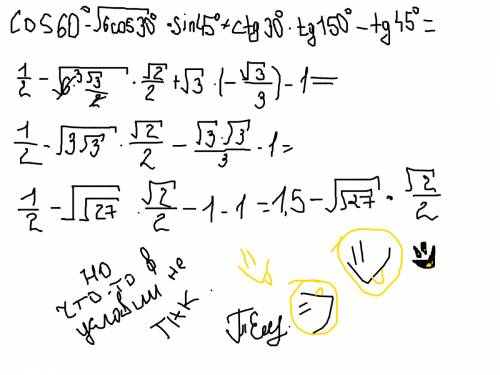 cos60° - √6cos30° · sin45° + ctg30° · tg150° - tg45° =
1/2 - √(6³ √3/2) · √2/2 + √3 · (-√3/3) - 1 =
1/2 - √(3√3) · √2/2 - √3·√3/3 - 1 =
1/2 - √√27 · √2/2 - 1 - 1 = 1,5 - √√27 · √2/2
НО
что-то в
условии не
так.